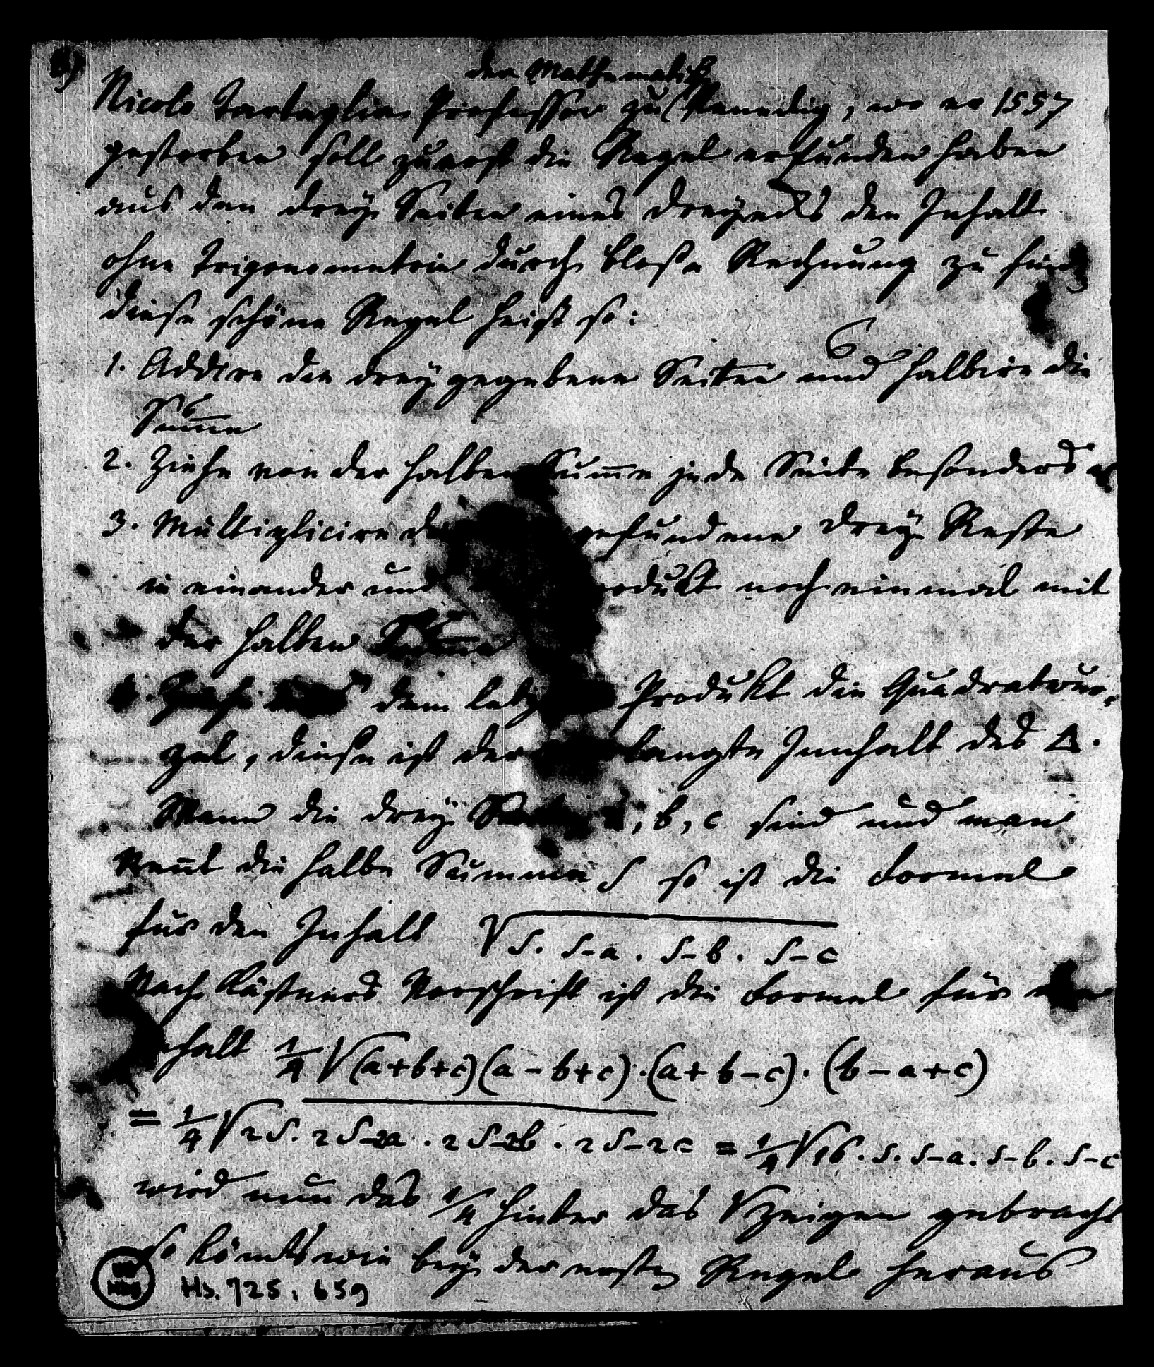 der Mathematick
Nicolo Tartaglia Professor zu Venedig, wo er 1557
gestorben soll zuerst die Regel erfunden haben
aus den drey Seiten eines Dreyecks den Inhalt
ohne Trigonometrie durch bloße Rechnung zu
diese schöne Regel heißt so:
1. Addire die drey gegebene Seiten und halbire die
Sum̄e
2. Ziehe von der halben Sum̄e jede Seite besonders
3. Multiplicire gefundene drey Reste
in einander und noch einmal mit
der halben
dem Produkt die Quadratwur-
zel, diese ist der Innhalt des Δ.
Wann die drey b, c sind und man
Nen̄t die halbe Summe S so ist die Formel
für den Inhalt √S. S-a. S-b. S-c
Nach Kästners Vorschrift ist die Formel für
halt 1/4 √(a+b+c)(a-b+c).(a+b-c).(b-a+c)
= 1/4 √2S. 2S-2a. 2S-2b. 2S-2c = 1/4 √16. S. S-a. S-b. S-c
wird nun das 1/4 hinter das √ Zeigen gebracht
so kömts wie bey der ersten Regel heraus
Hs. 725, 659